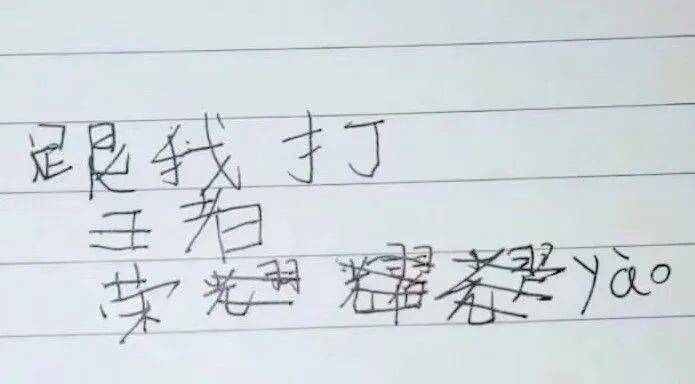 跟我打
王者
荣yào